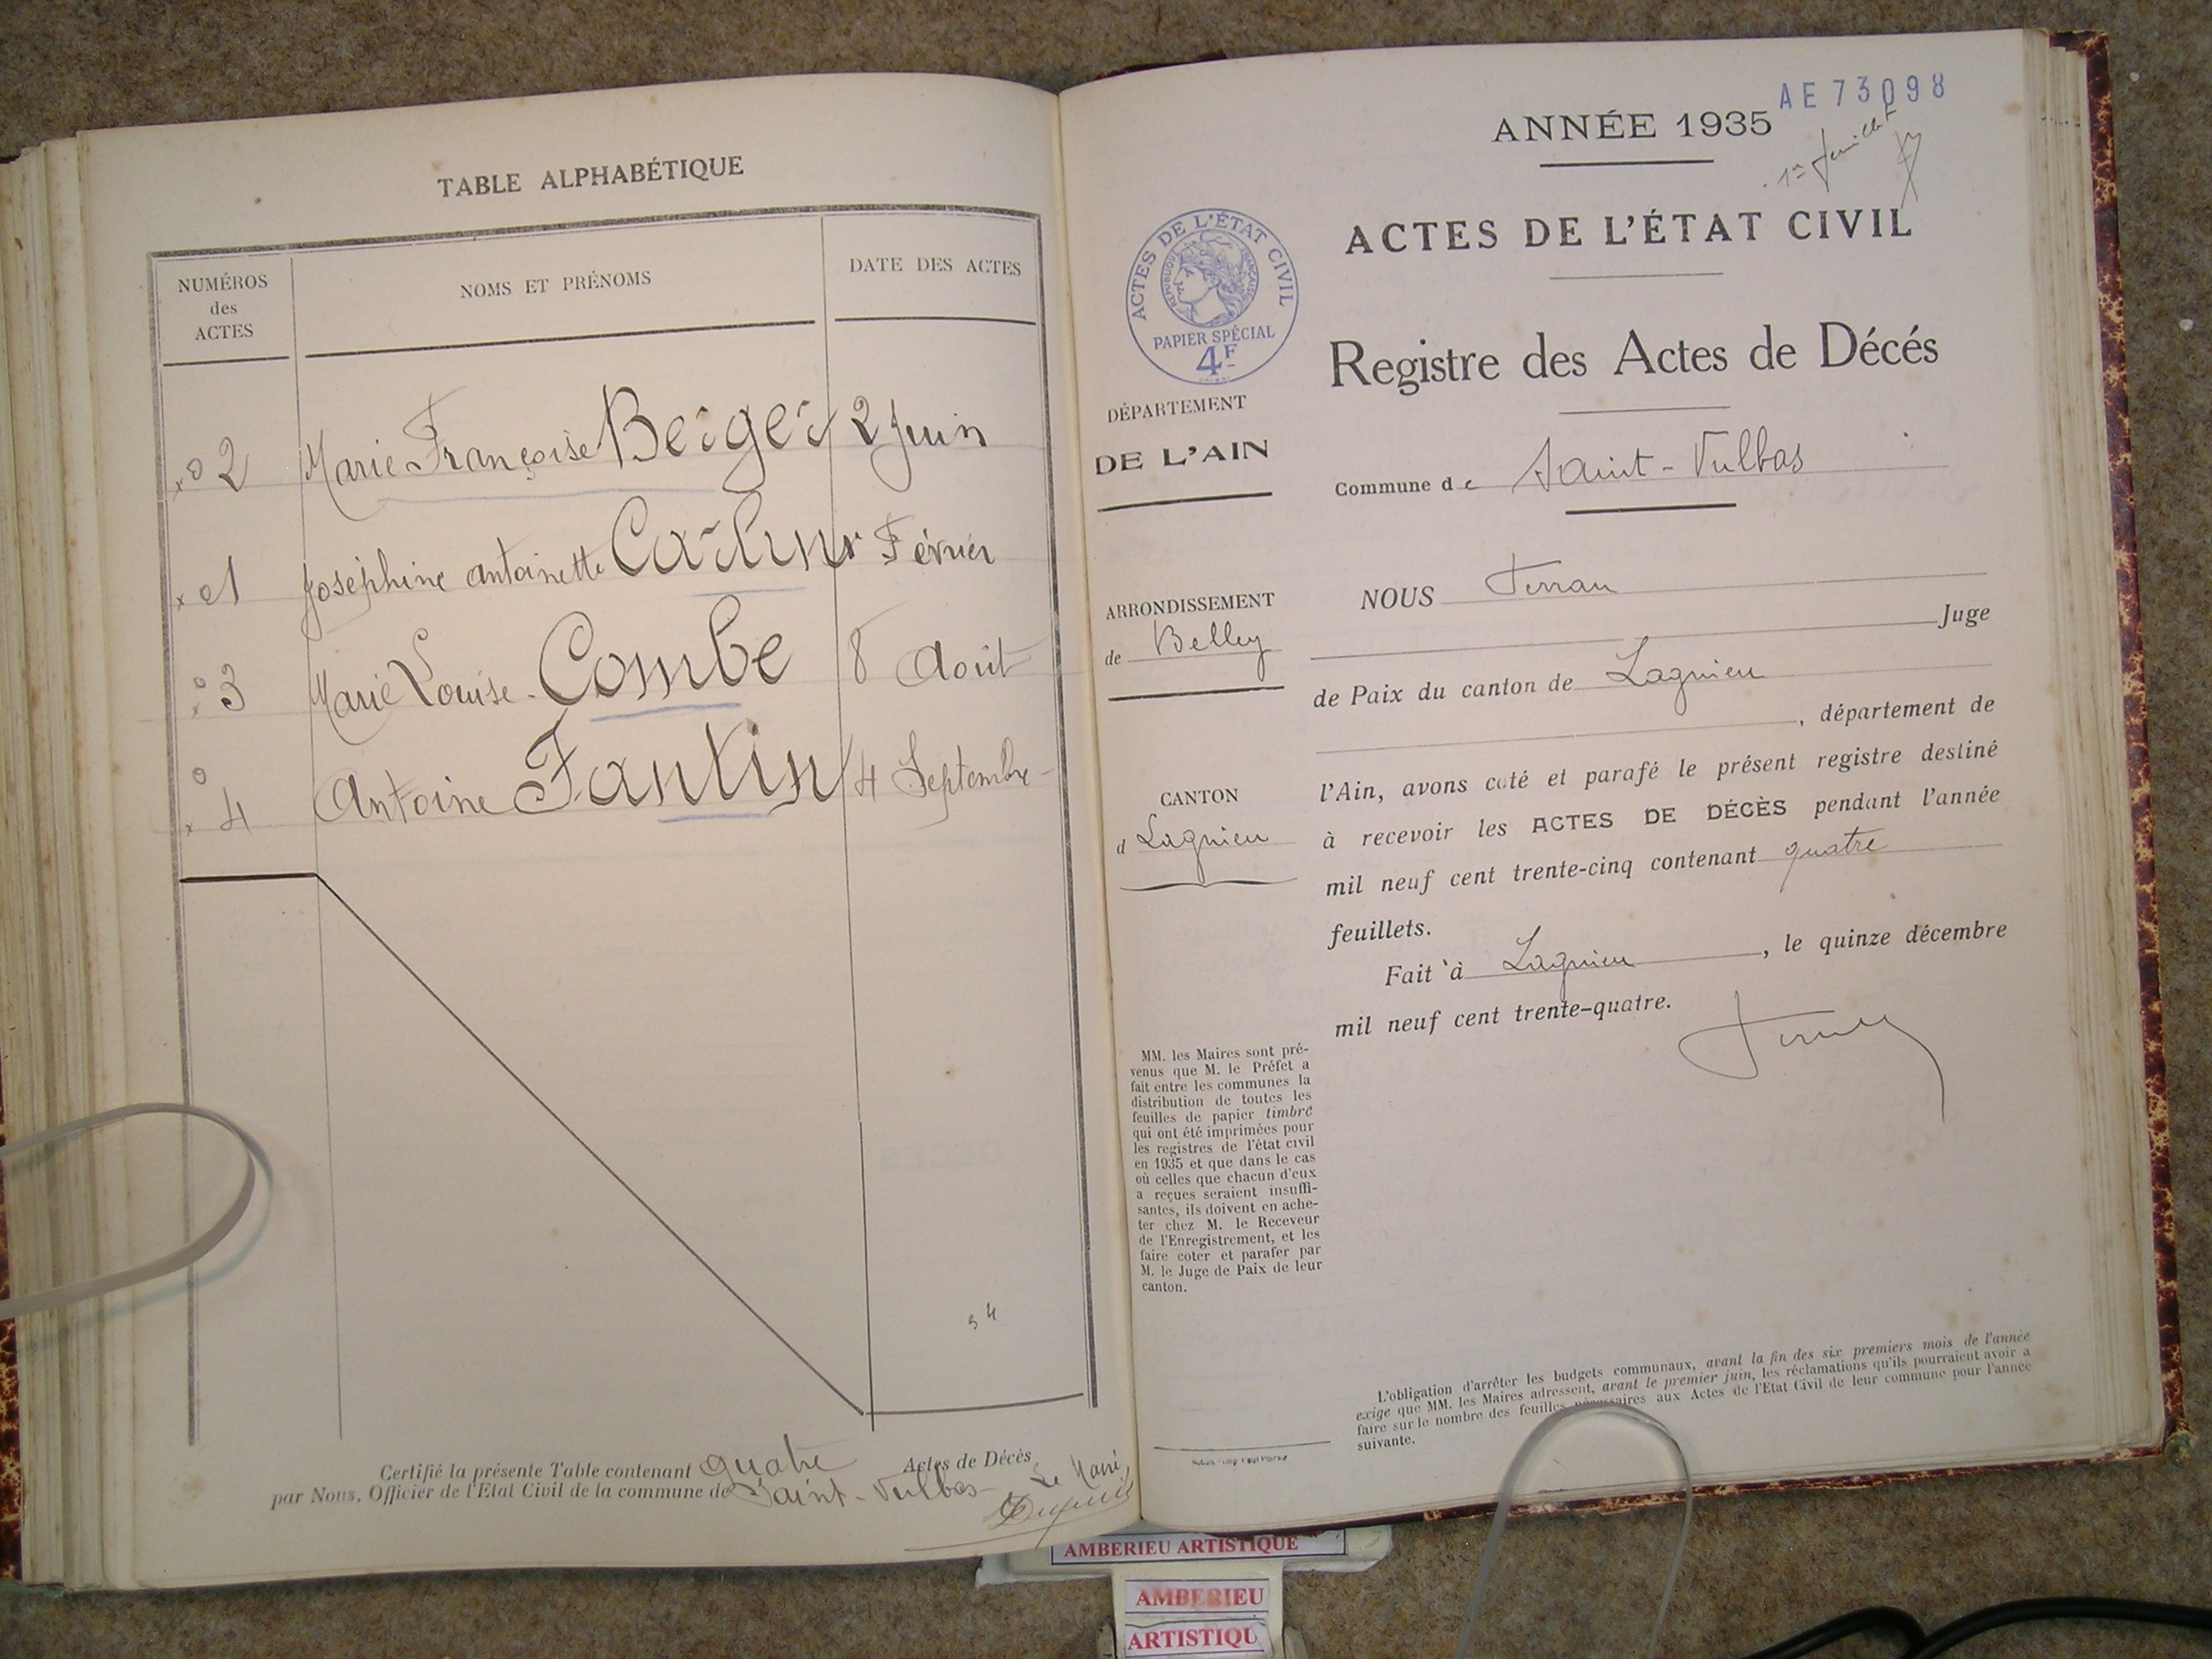 TABLE ALPHABÉTIQUE
NUMÉROS
des
ACTES
NOMS ET PRÉNOMS
DATE DES ACTES
2 Marie Françoise Berger 2 Juin
1 Joséphine Antoinette Février
3 Marie Louise Combe 8 Août
4 Antoine Fantin 4 Septembre
34
Certifié la présente Table contenant quatre Actes de Décès
par Nous, Officier de l'Etat Civil de la commune de Saint-Vulbas Le Maire
AE73098
ANNÉE 1935
1er feuillet
ACTES DE L'ÉTAT CIVIL
ACTES DE L'ÉTAT CIVIL
RÉPUBLIQUE FRANÇAISE
PAPIER SPÉCIAL
4F
Registre des Actes de Décés
DÉPARTEMENT
DE L'AIN
Commune de Saint-Vulbas
ARRONDISSEMENT
de Belley
CANTON
d Lagnieu
NOUS
Juge
de Paix du canton de Lagnieu
, département de
l'Ain, avons coté et parafé le présent registre destiné
à recevoir les ACTES DE DÉCÈS pendant l'année
mil neuf cent trente-cinq contenant quatre
feuillets.
Fait à Lagnieu, le quinze décembre
mil neuf cent trente-quatre.
MM. les Maires sont pré-
venus que M. le Préfet a
fait entre les communes la
distribution de toutes les
feuilles de papier timbré
qui ont été imprimées pour
les registres de l'état civil
en 1935 et que dans le cas
où celles que chacun d'eux
a reçues seraient insuffi-
santes, ils doivent en ache-
ter chez M. le Receveur
de l'Enregistrement, et les
faire coter et parafer par
M. le Juge de Paix de leur
canton.
L'obligation d'arrêter les budgets communaux, avant la fin des six premiers mois de l'année
exige que MM. les Maires adressent, avant le premier juin, les réclamations qu'ils pourraient avoir a
faire sur le nombre des feuilles nécessaires aux Actes de l'Etat Civil de leur commune pour l'année
suivante.
AMBERIEU ARTISTIQUE
AMBERIEU
ARTISTIQU